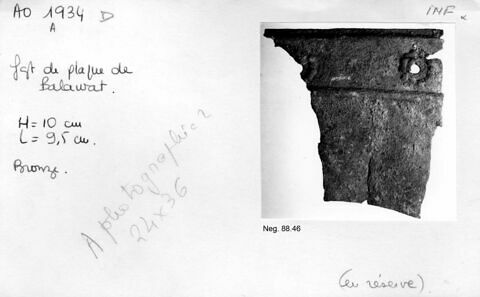 AO 1934 D
A
INF
fgt de plaque de
Balawat.
H = 10 cm
L = 9,5 cm.
Bronze.
A photographier
24x36
Neg. 88.46
(en réserve)